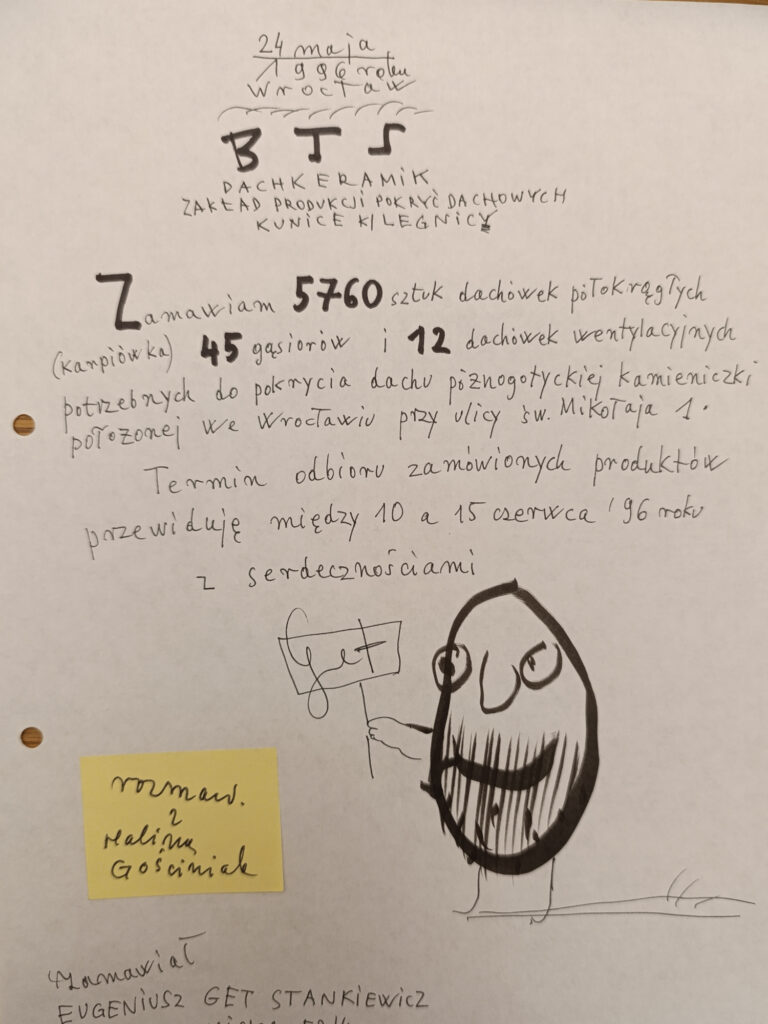 24 maja
1996 roku
Wrocław
BTS
DACHKERAMIK
ZAKŁAD PRODUKCJI POKRYĆ DACHOWYCH
KUNICE K/LEGNICY
Zamawiam 5760 sztuk dachówek półokrągłych
(karpiówka) 45 gąsiorów i 12 dachówek wentylacyjnych
potrzebnych do pokrycia dachu póznogotyckiej kamieniczki
położonej we Wrocławiu przy ulicy św. Mikołaja 1.
Termin odbioru zamówionych produktów
przewiduję między 10 a 15 czerwca '96 roku
z serdecznościami
Get
rozmaw.
z
Haliną
Gościniak
Zamawiał
EUGENIUSZ GET STANKIEWICZ